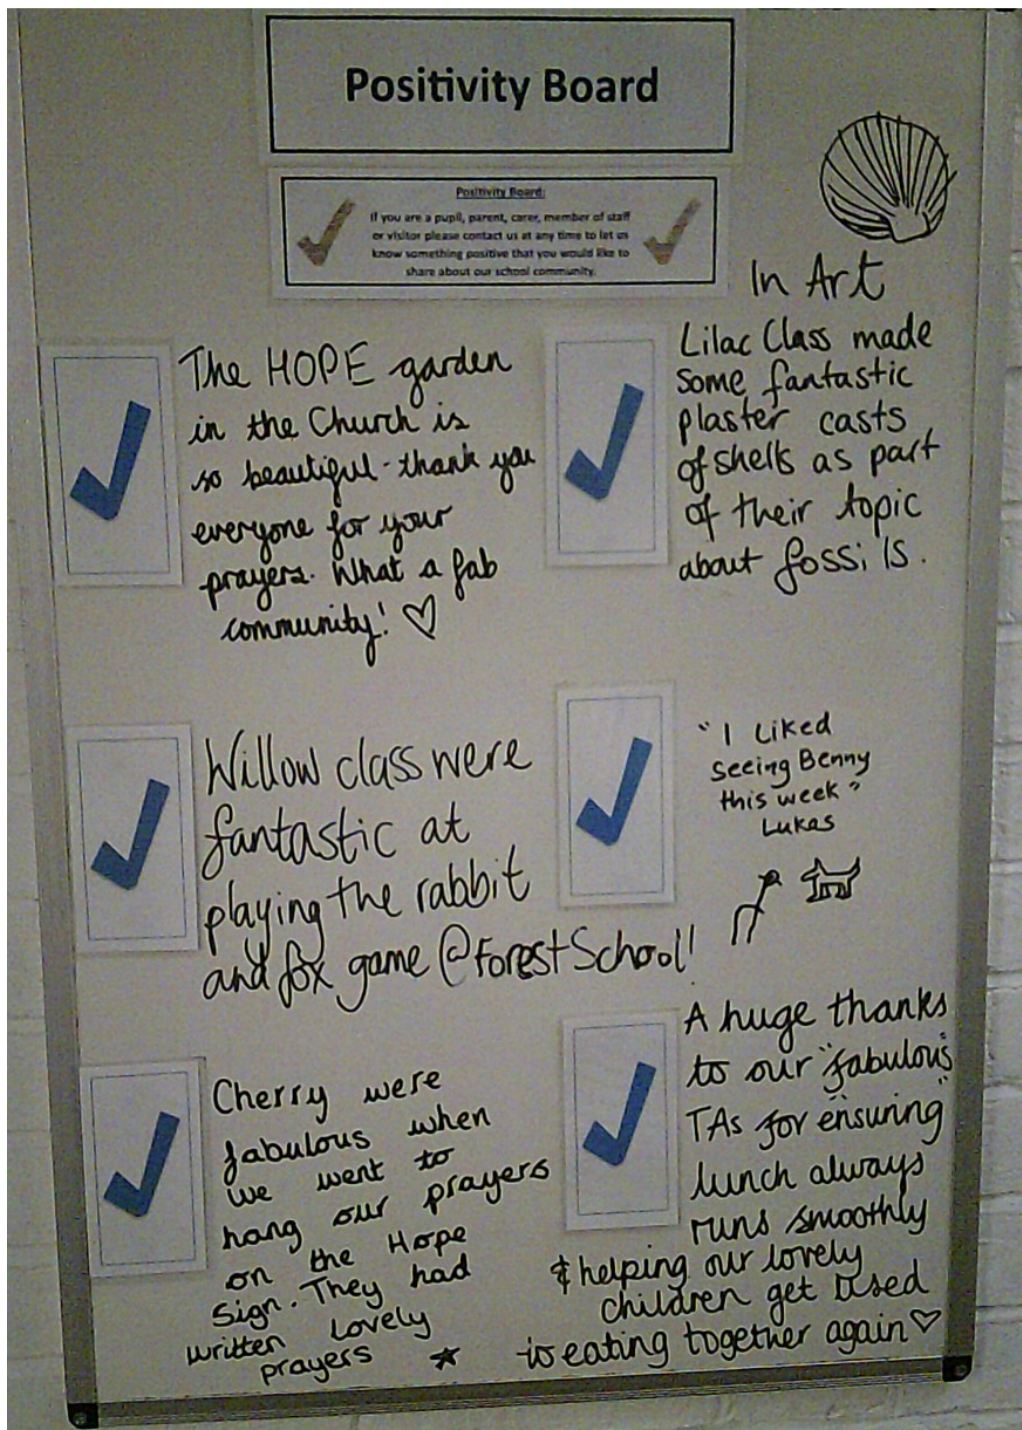 Positivity Board
Positivity Board:
If you are a pupil, parent, carer, member of staff
or visitor please contact us at any time to let us
know something positive that you would like to
share about our school community.
The HOPE garden
in the Church is
so beautiful - thank you
everyone for your
prayers. What a fab
community! ♡
In Art
Lilac Class made
some fantastic
plaster casts
of shells as part
of their topic
about fossils.
Willow class were
fantastic at
playing the rabbit
and fox game @ Forest School!
"I Liked
Seeing Benny
this week"
Lukas
Cherry were
fabulous when
we went to
hang our prayers
on the Hope
Sign. They had
written Lovely
prayers ★
A huge thanks
to our "fabulous"
TAs for "ensuring"
lunch always
runs smoothly
& helping our lovely
children get used
to eating together again ♡